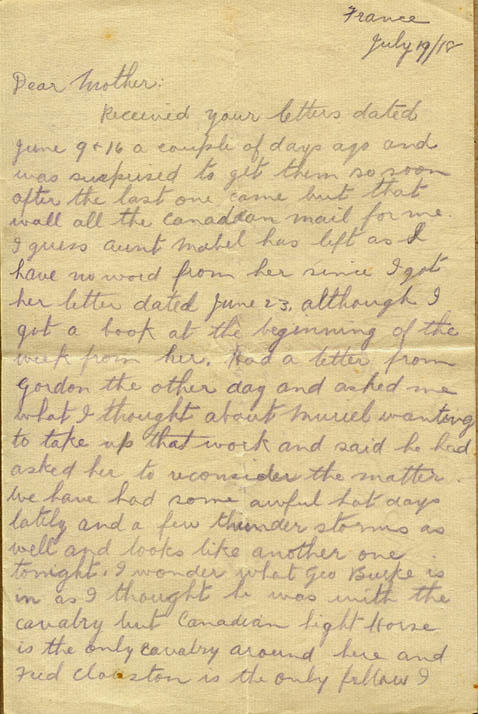 France
July 19/18
Dear Mother:
Received your letters dated
June 9 & 16 a couple of days ago and
was surprised to get them so soon
after the last one came but that
wall all the Canadian mail for me.
I guess Aunt Mabel has left as I
have no word from her since I got
her letter dated June 23, although I
got a book at the beginning of the
week from her. Had a letter from
Gordon the other day and asked me
what I thought about Muriel wanting
to take up that work and said he had
asked her to reconsider the matter.
We have had some awful hot days
lately and a few thunder storms as
well and looks like another one
tonight. I wonder what Geo Burke is
in as I thought he was with the
cavalry but Canadian Light Horse
is the only cavalry around here and
Fred Clouston is the only fellow I